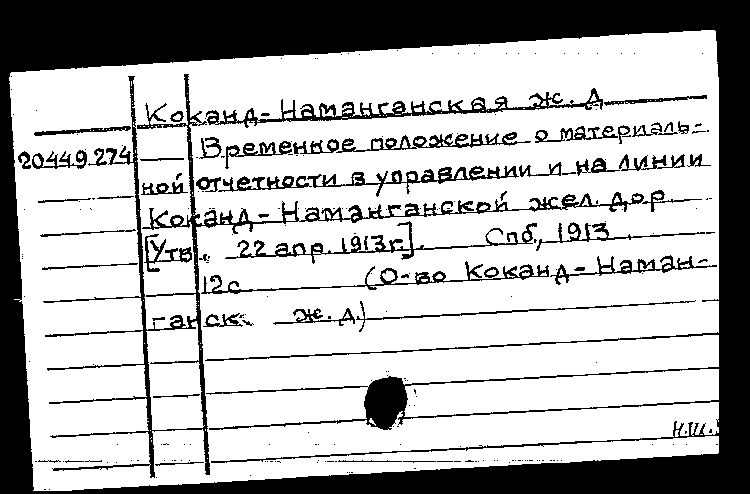 Коканд-Наманганская ж. д
20449.274 — Временное положение о материаль-
ной отчетности в управлении и на линии
Коканд-Наманганской жел. дор.
[Утв. 22 апр. 1913г.]. Спб., 1913.
12с (О-во Коканд-Наман-
ганск. ж. д.)
Н.Ш.